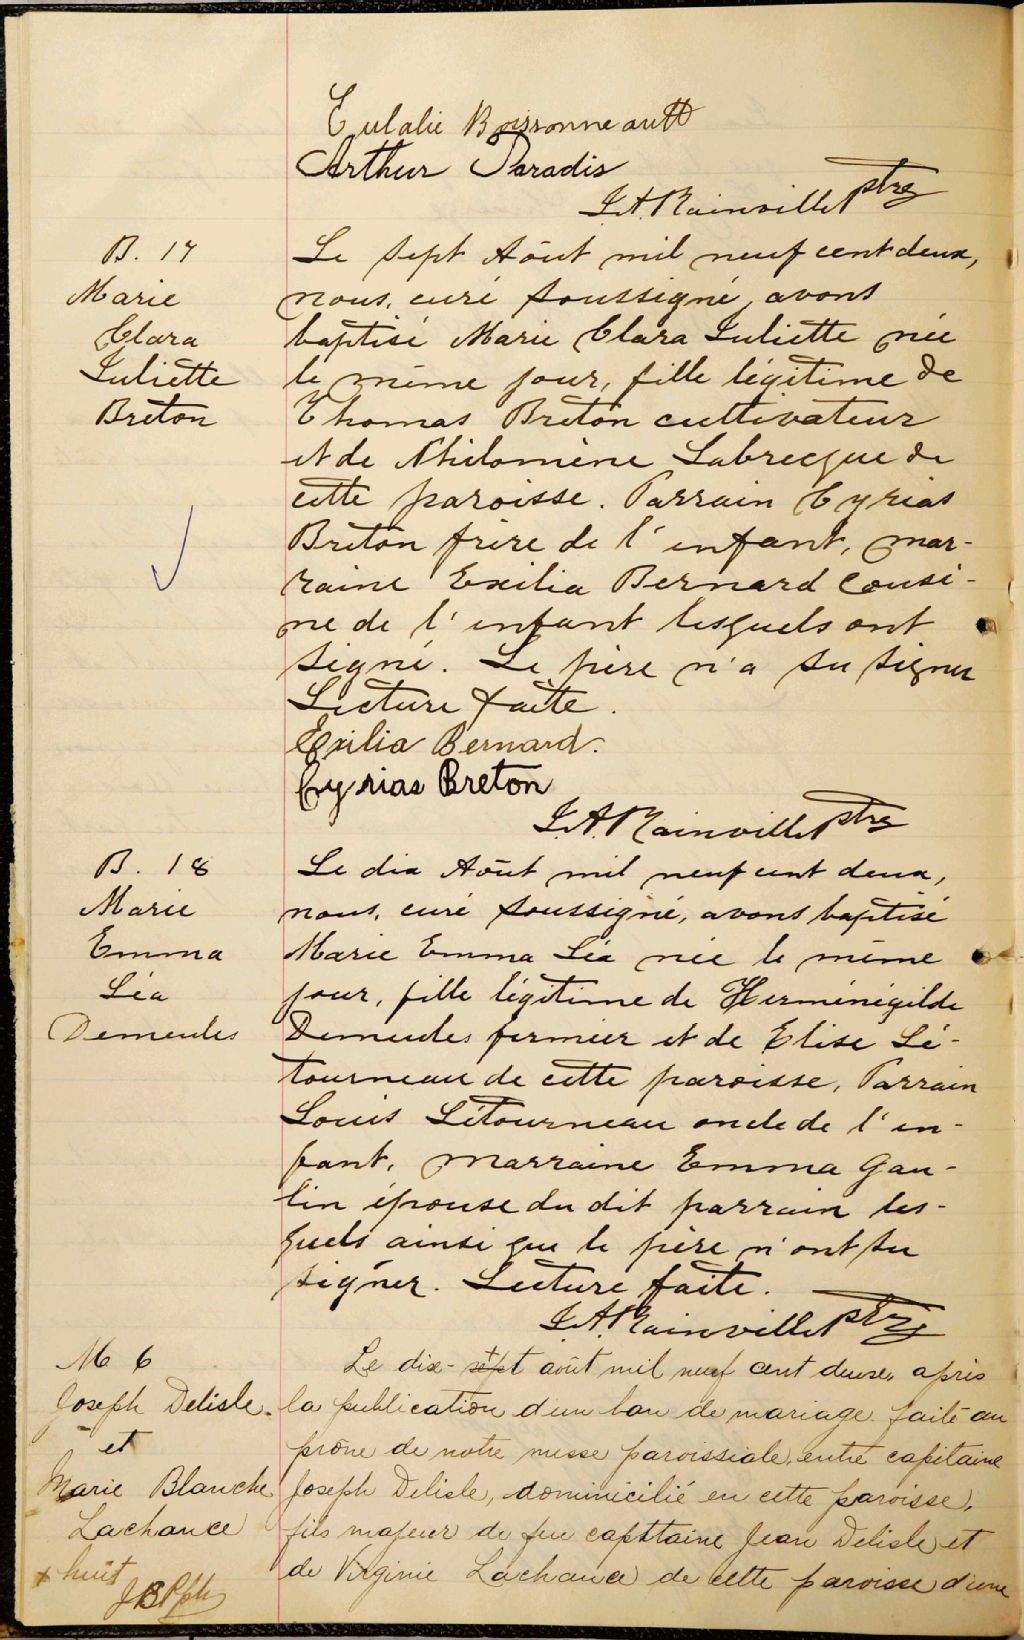 Eulalie Boissonneault
Arthur Paradis
J.A. Rainville Ptre
B. 17
Marie
Clara
Juliette
Breton
Le sept Août mil neuf cent deux,
nous, curé soussigné, avons
baptisé Marie Clara Juliette née
le même jour, fille légitime de
Thomas Breton cultivateur
et de Philomène Labrecque de
cette paroisse. Parrain Cyrias
Breton frère de l'enfant, mar-
raine Exilia Bernard cousi-
ne de l'enfant lesquels ont
signé. Le père n'a su signer
Lecture faite.
Exilia Bernard.
Cyrias Breton
J.A. Rainville Ptre
B. 18
Marie
Emma
Léa
Demeules
Le dix Août mil neuf cent deux,
nous, curé soussigné, avons baptisé
Marie Emma Léa née le même
jour, fille légitime de Herménégilde
Demeules fermier et de Elise Lé-
tourneau de cette paroisse, Parrain
Louis Létourneau oncle de l'en-
fant, marraine Emma Gau-
lin épouse du dit parrain les-
quels ainsi que le père n'ont su
signer. Lecture faite.
J.A. Rainville Ptre
M 6
Joseph Delisle
et
Marie Blanche
Lachance
+ huit
Le dix-sept + août mil neuf cent deux, après
la publication d'un ban de mariage faite au
prône de notre messe paroissiale, entre capitaine
Joseph Delisle, dominicilié en cette paroisse,
fils majeur de feu capitaine Jean Delisle et
de Virginie Lachance de cette paroisse d'une